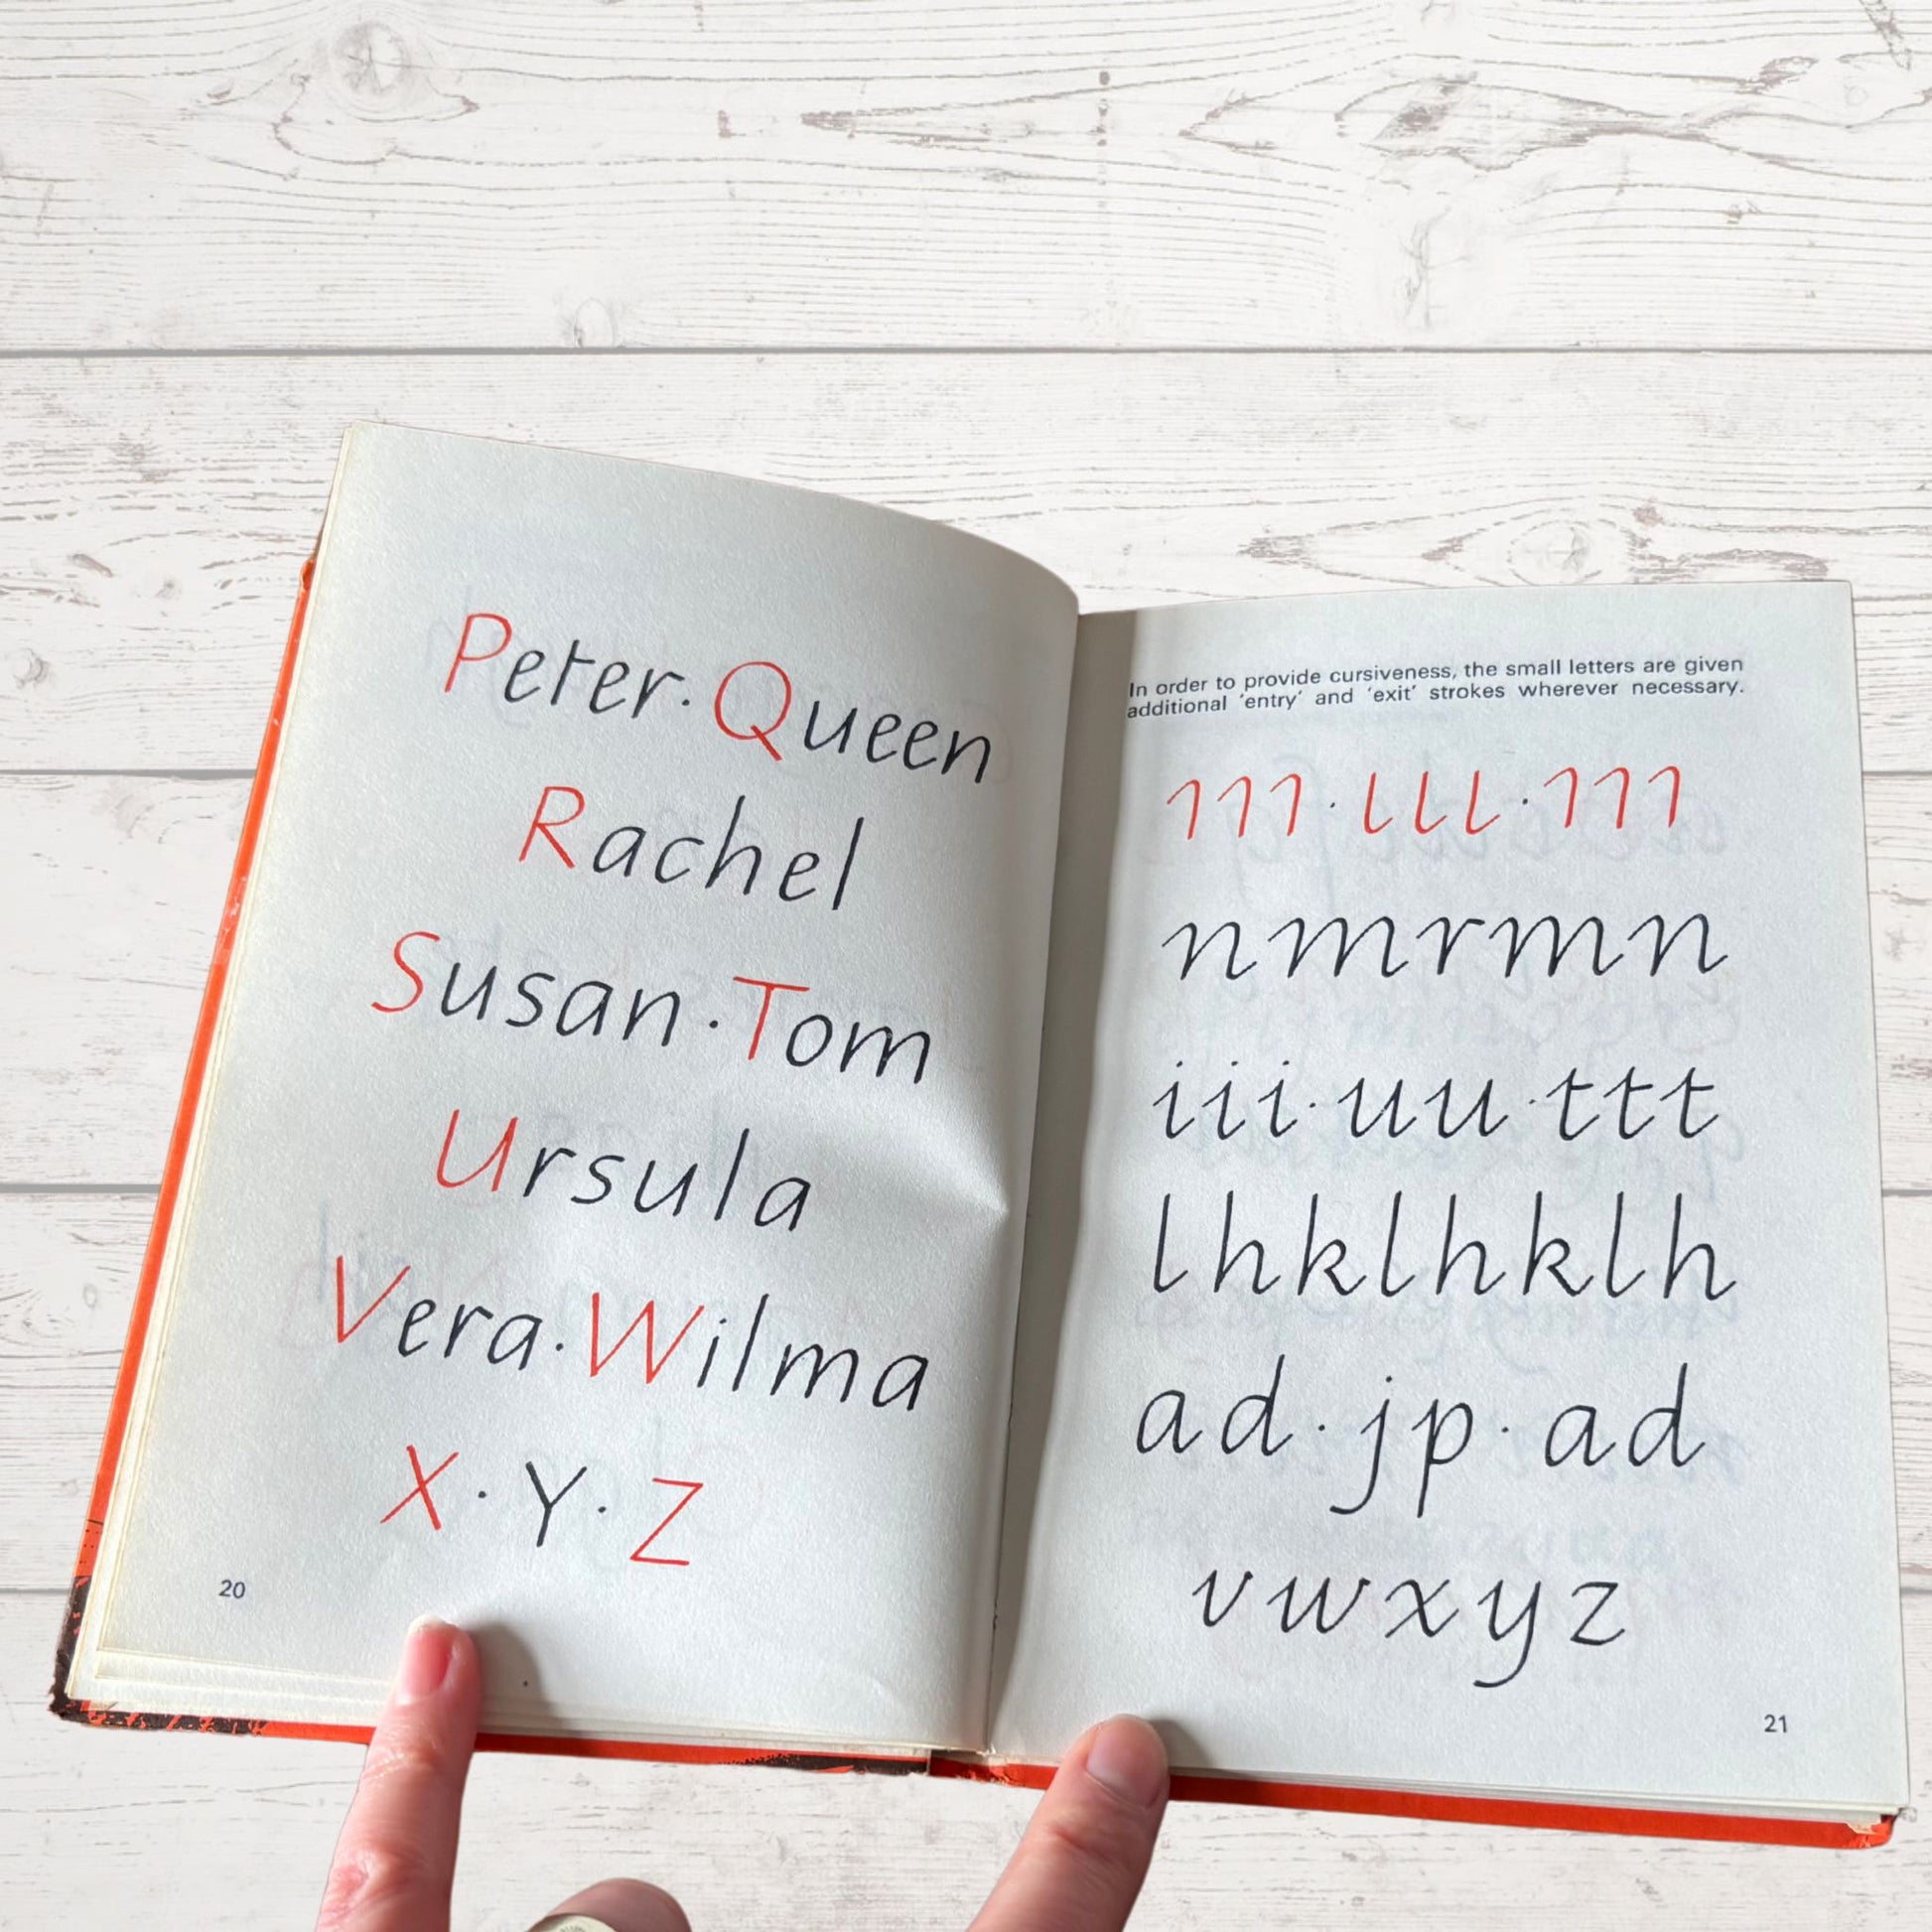 Peter·Queen
Rachel
Susan·Tom
Ursula
Vera·Wilma
X·Y·Z
20
In order to provide cursiveness, the small letters are given
additional 'entry' and 'exit' strokes wherever necessary.
111·lll·111
nmrmn
iii·uu·ttt
lhklhklh
ad·jp·ad
vwxyz
21